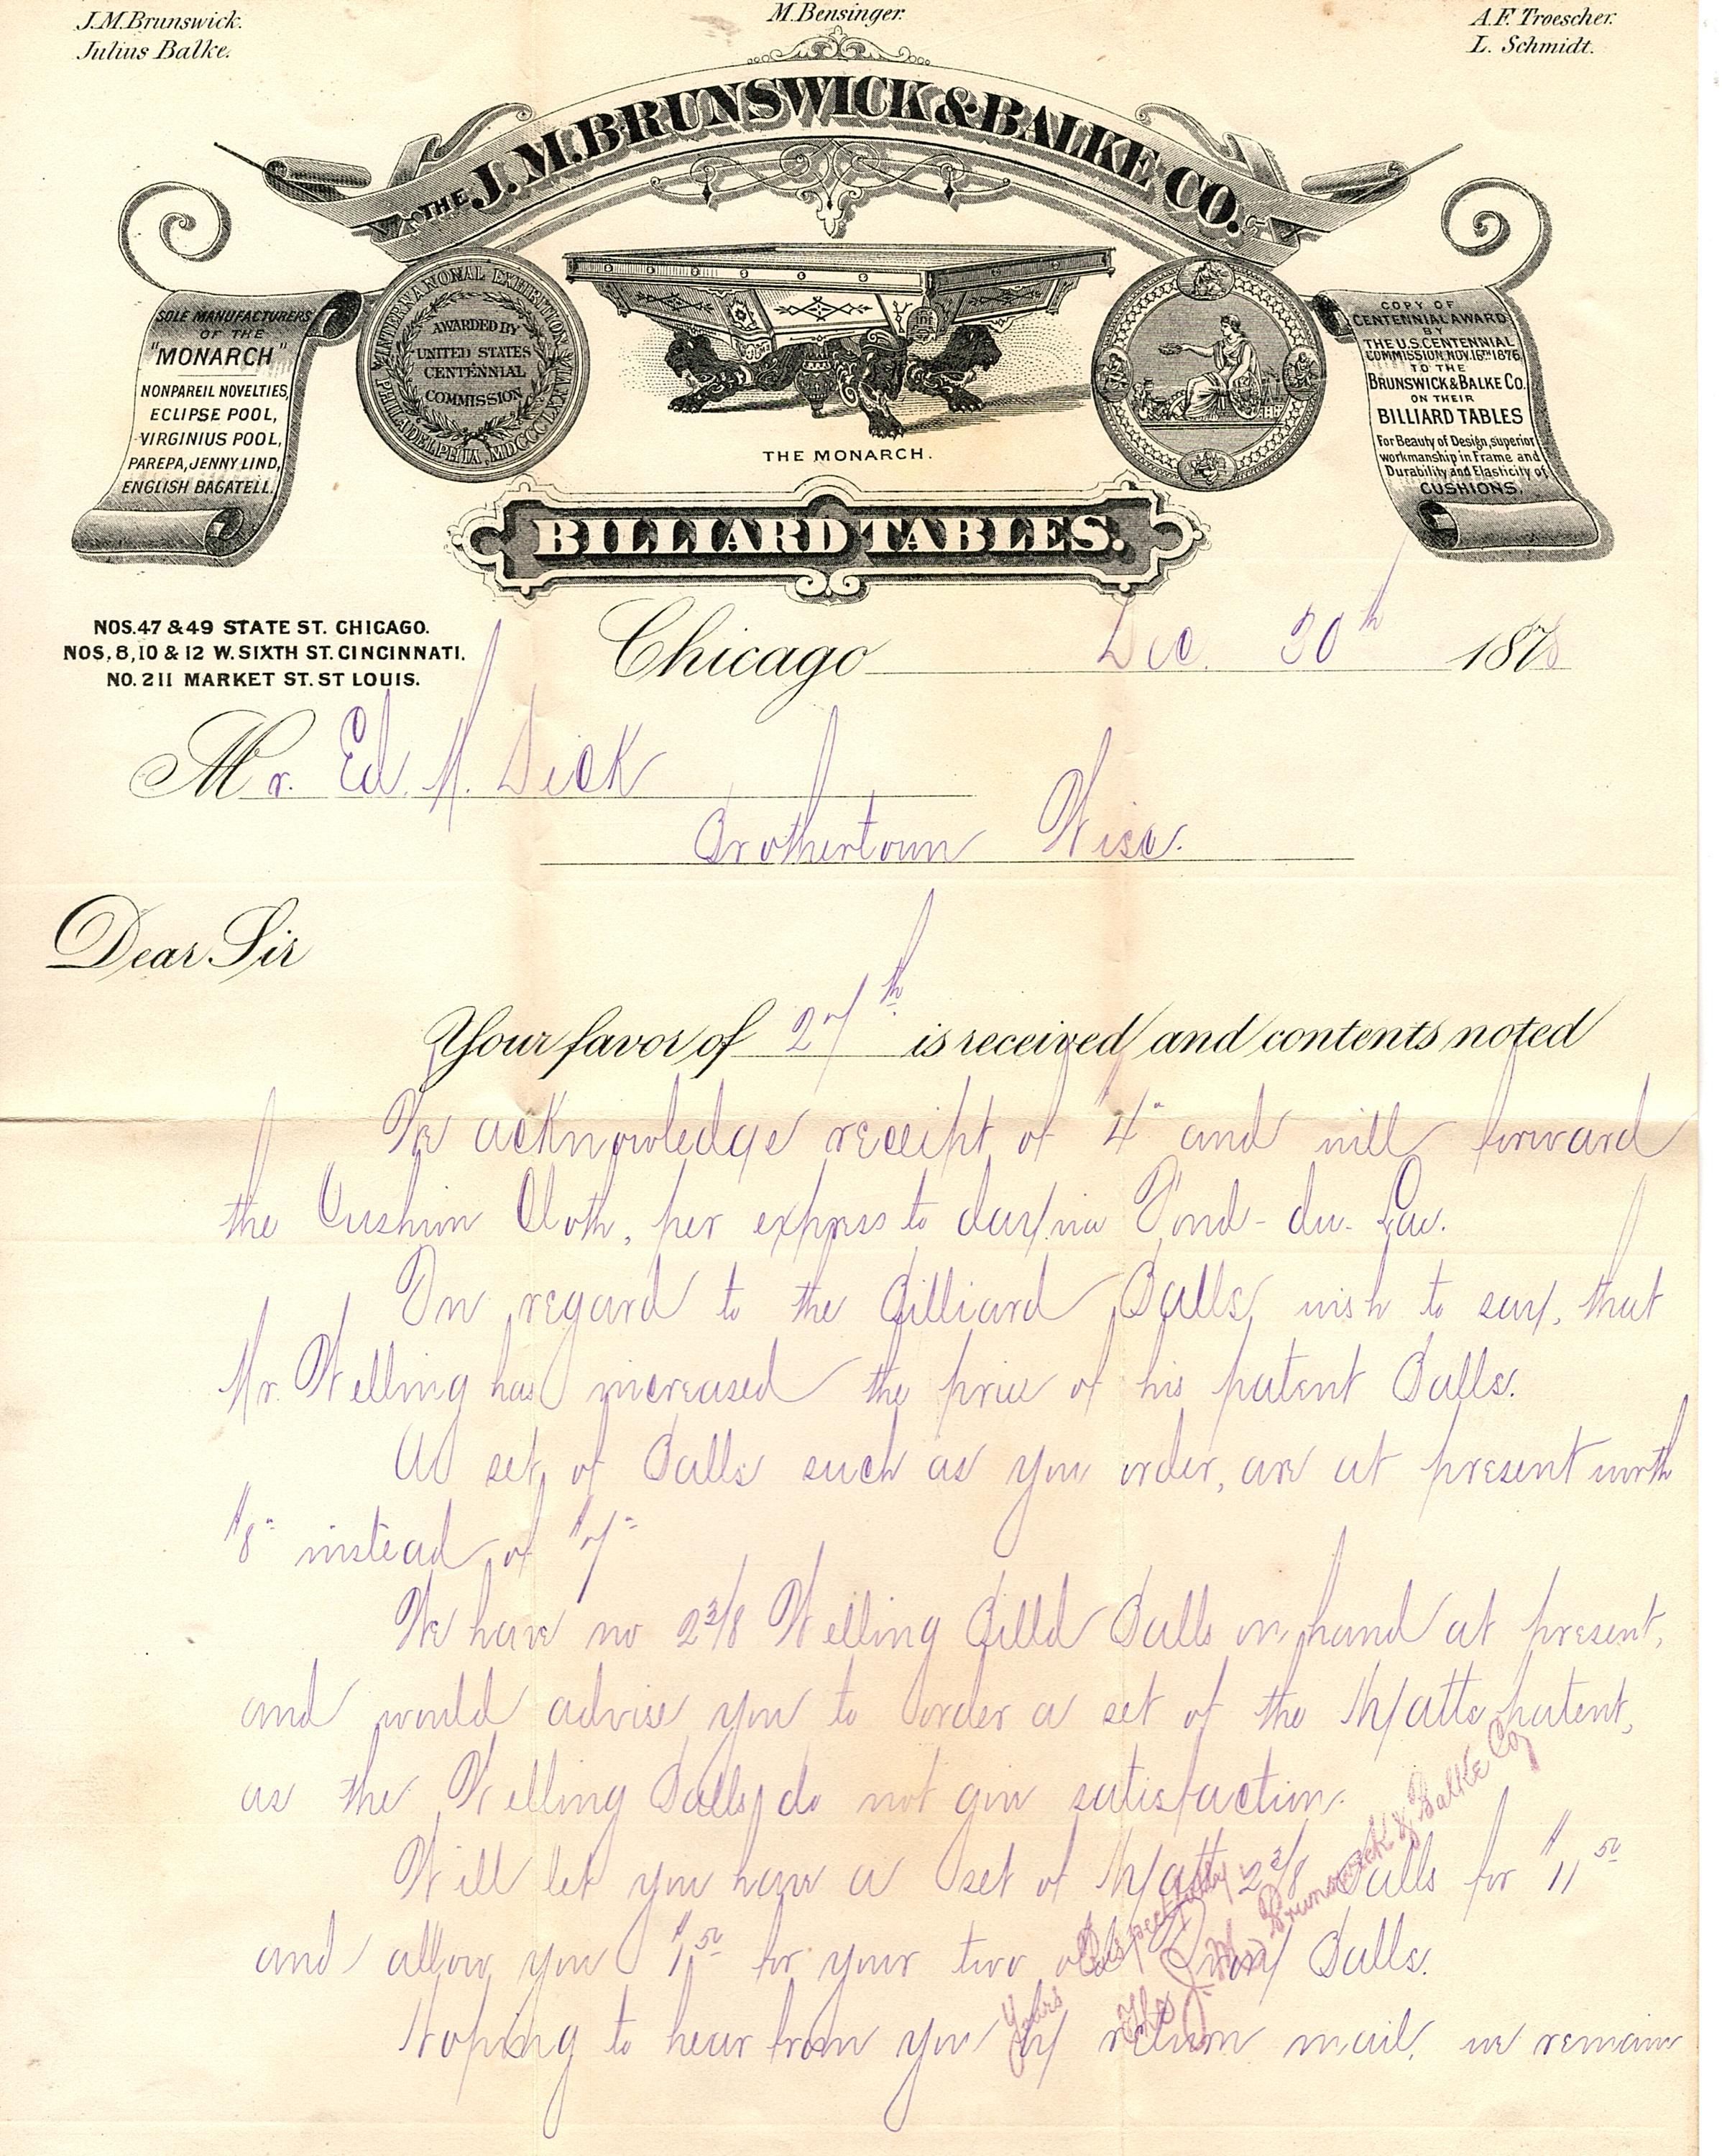 J.M.Brunswick.
Julius Balke.
M.Bensinger.
A.F. Troescher.
L. Schmidt.
THE J.M.BRUNSWICK & BALKE CO.
SOLE MANUFACTURERS
OF THE
"MONARCH"
NONPAREIL NOVELTIES,
ECLIPSE POOL,
VIRGINIUS POOL,
PAREPA, JENNY LIND,
ENGLISH BAGATELL.
INTERNATIONAL EXHIBITION
PHILADELPHIA, MDCCCLXXVI
AWARDED BY
UNITED STATES
CENTENNIAL
COMMISSION
THE MONARCH.
COPY OF
CENTENNIAL AWARD
BY
THE U.S. CENTENNIAL
COMMISSION, NOV. 16TH 1876,
TO THE
BRUNSWICK & BALKE CO.
ON THEIR
BILLIARD TABLES
For Beauty of Design, superior
workmanship in Frame and
Durability and Elasticity of
CUSHIONS.
BILLIARD TABLES.
NOS. 47 & 49 STATE ST. CHICAGO.
NOS. 8, 10 & 12 W. SIXTH ST. CINCINNATI.
NO. 211 MARKET ST. ST LOUIS.
Chicago Dec. 30th 1878
Mr. Ed. M. Dick
Brothertown Wisc.
Dear Sir
Your favor of 27th is received and contents noted
We acknowledge receipt of $4 and will forward
the Cushion Cloth, per express to day via Fond-du-Lac.
In regard to the Billiard Balls, wish to say, that
Mr. Welling has increased the price of his patent Balls.
A set of Balls such as you order, are at present worth
$8= instead of $7=
We have no 2 3/8 Welling Billd Balls on hand at present,
and would advise you to order a set of the Hyatts patent,
as the Welling Balls do not give satisfaction.
Will let you have a set of Hyatts 2 3/8 Balls for $11 50
and allow you $1 50 for your two old Ivory Balls.
Hoping to hear from you by return mail, we remain
Yours Respectfully
The J. M. Brunswick & Balke Co